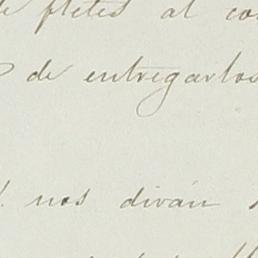 de fletes al
de entregarlos
nos diván